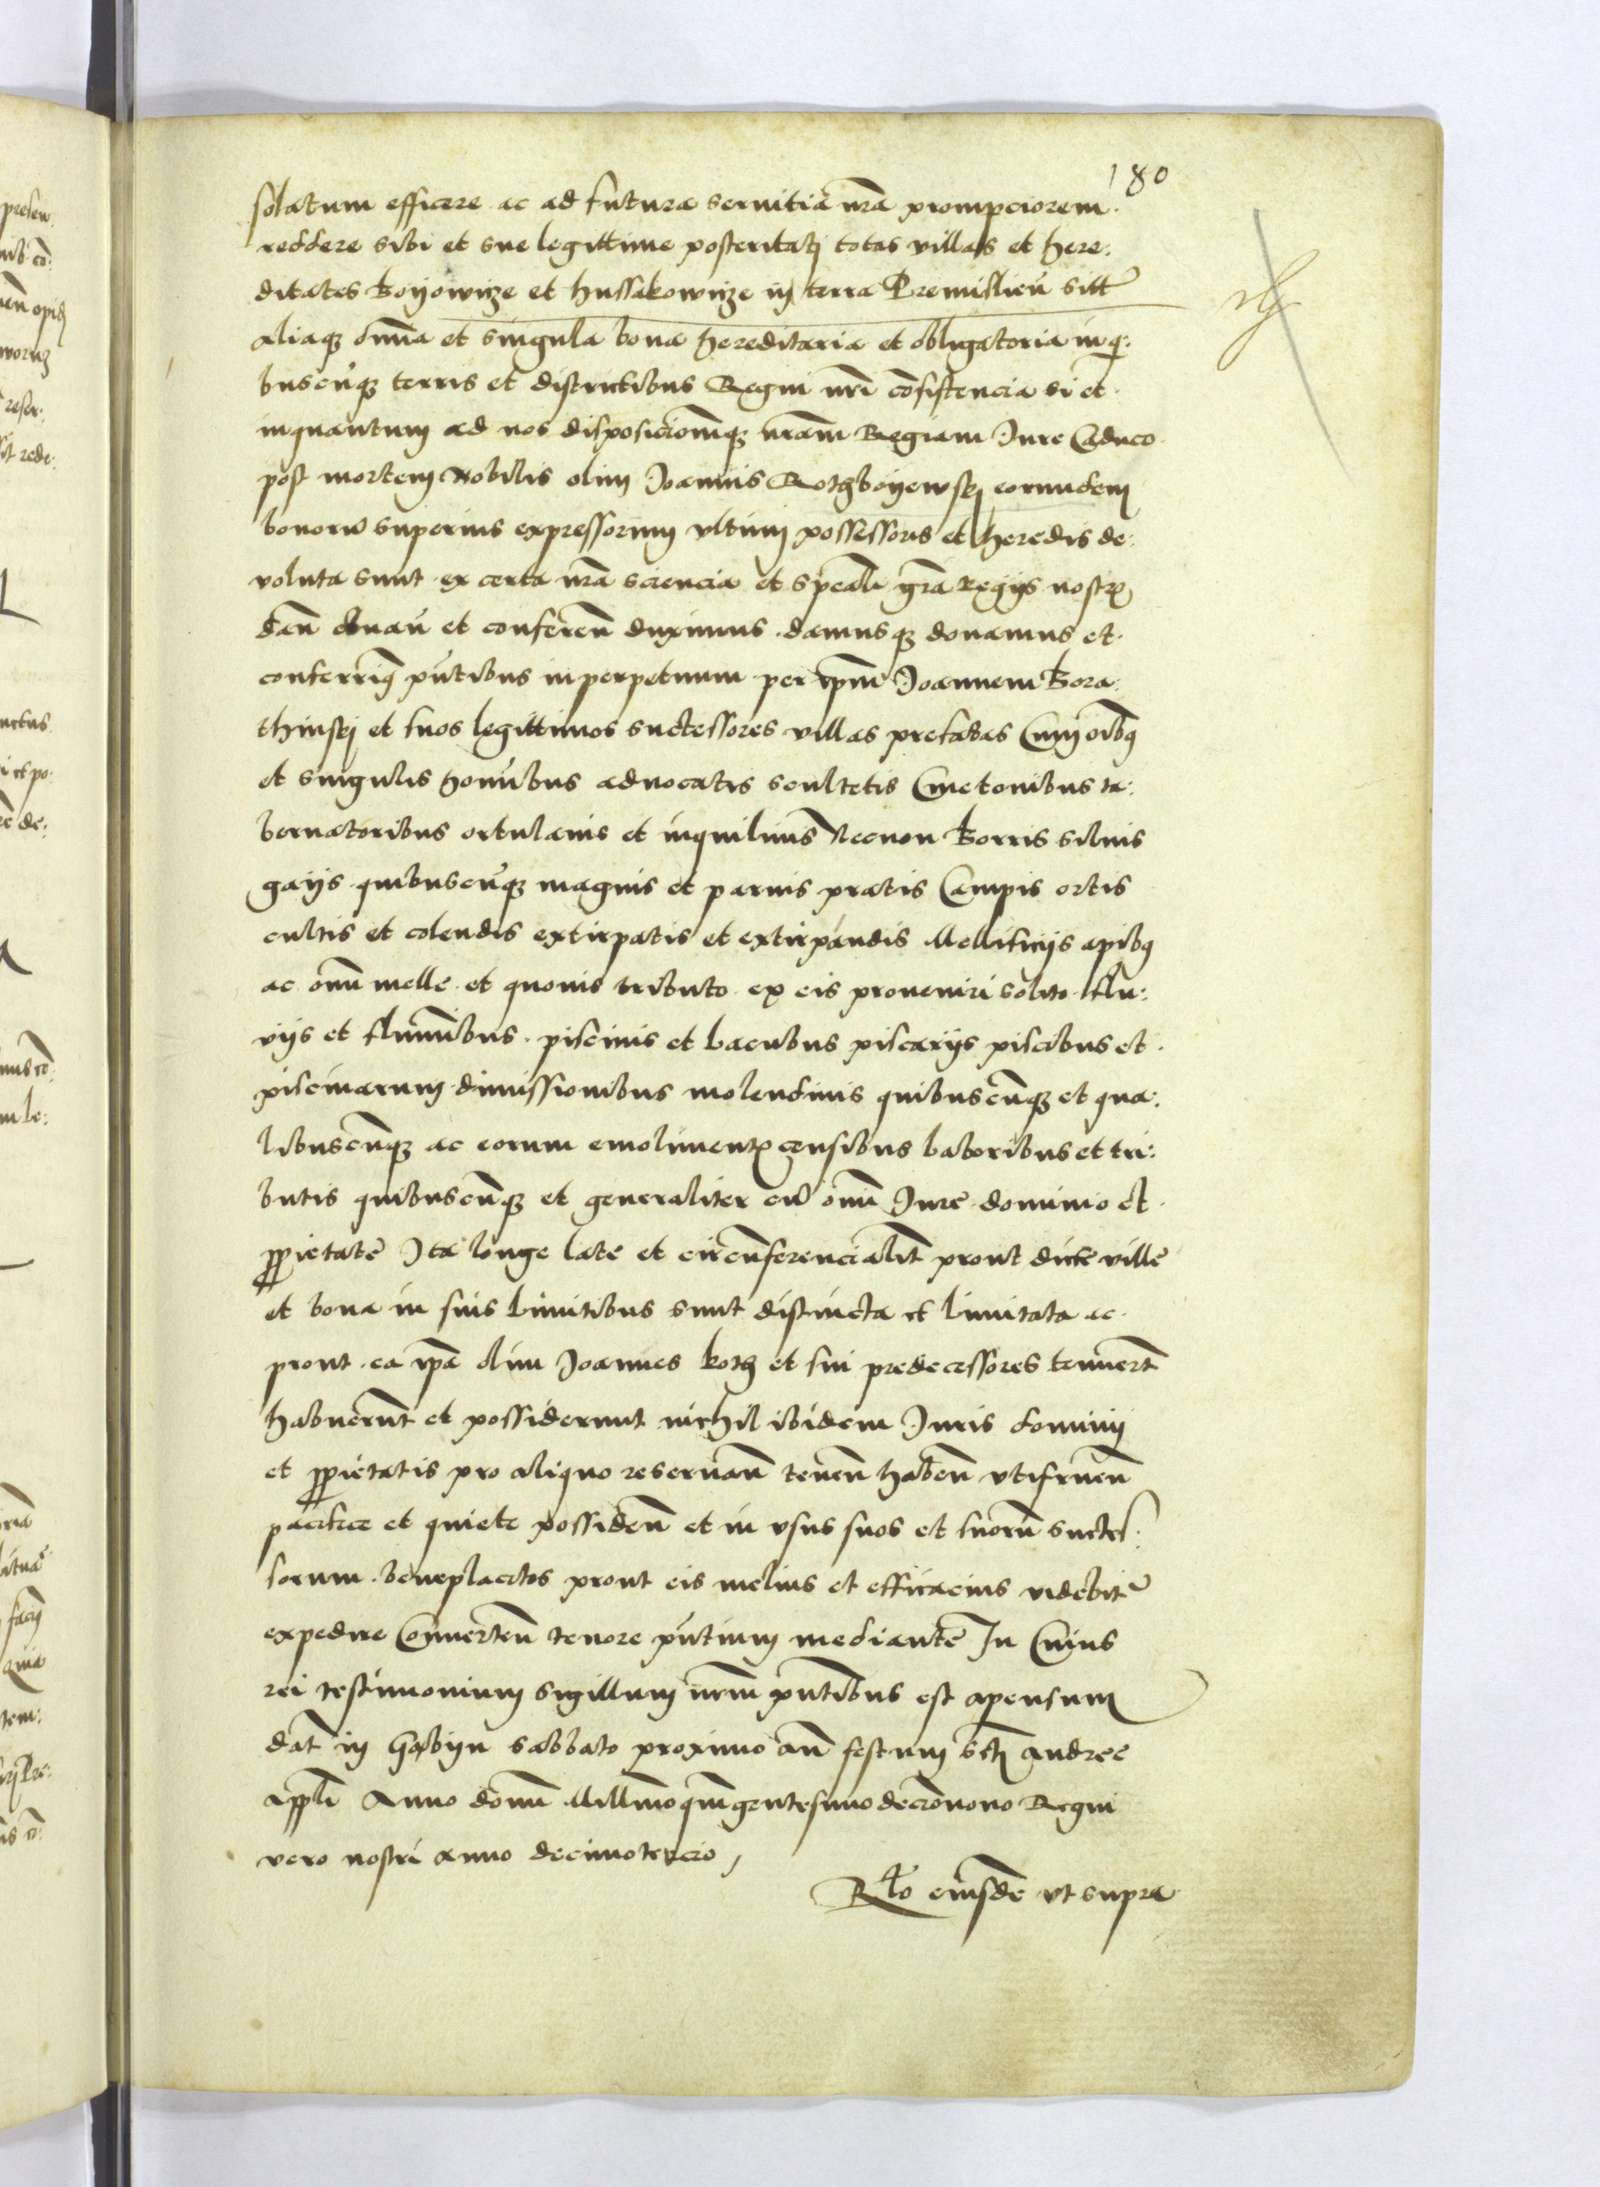 180
solatum efficere ac ad futura servitia nrā prompciorem
reddere sibi et sue legittime posteritati totas villas et here:
ditates Boyowicze et hussakowicze in terra Premislieñ sitt
aliaqz omnia et singula bona hereditaria et obligatoria in qui:
buscuqz terris et districtibus Regni nri cōsistencia si et
inquantum ad nos disposicionemqz nram Regiam Jure Caduco
post mortem Nobilis olim Joannis Rothboyewsky eorundem
bonorū superius expressorum vltimi possessoris et heredis de:
voluta sunt ex certa nrā sciencia et speāli grā Regijs nostrꝭ
dañ donañ et conferenñ duximus damusqz donamus et
conferimꝰ pntibus in perpetuum per ipm Joannem Bora:
thinsky et suos legittimos successores villas prefatas Cum oibꝰ
et singulis hoibus advocatis scultetis Cmetonibus ta:
bernatoribus ortulanis et inquilinis Necnon Borris silvis
gayis quibuscuqz magnis et parvis pratis Campis ortis
cultis et colendis extirpatis et extirpandis Mellificijs apibꝰ
ac omi melle et quovis tributo ex eis proveniri solito flu:
vijs et fluminibus piscinis et lacubus piscarijs piscibus et
piscinarum dimissionibus molendinis quibuscuqz et qua:
libuscuqz ac eorum emolimentꝭ censibus laboribus et tri:
butis quibuscuqz et generaliter cū omi Jure dominio et
ppietate Ita longe late et circumferencialit prout dicte ville
et bona in suis limitibus sunt distincta et limitata ac
prout ea ipā olim Joannes Roth et sui predecessores tenuert
habuerunt et possiderunt nichil ibidem Juris dominij
et ppietatis pro aliquo reservañ teneñ habeñ vtifrueñ
pacifice et quiete possideñ et in vsus suos et suorū succes:
sorum beneplacitos prout eis melius et efficacius videbit
expedire Converteñ tenore pntium mediante In Cuius
rei testimonium sigillum nrm pntibus est apensum
dat in Gabyn sabbato proximo añ festum scti andree
appli Anno domi Millmoquingentesimodecimonono Regni
vero nostri anno decimotercio
Rlo eiusde vt supra